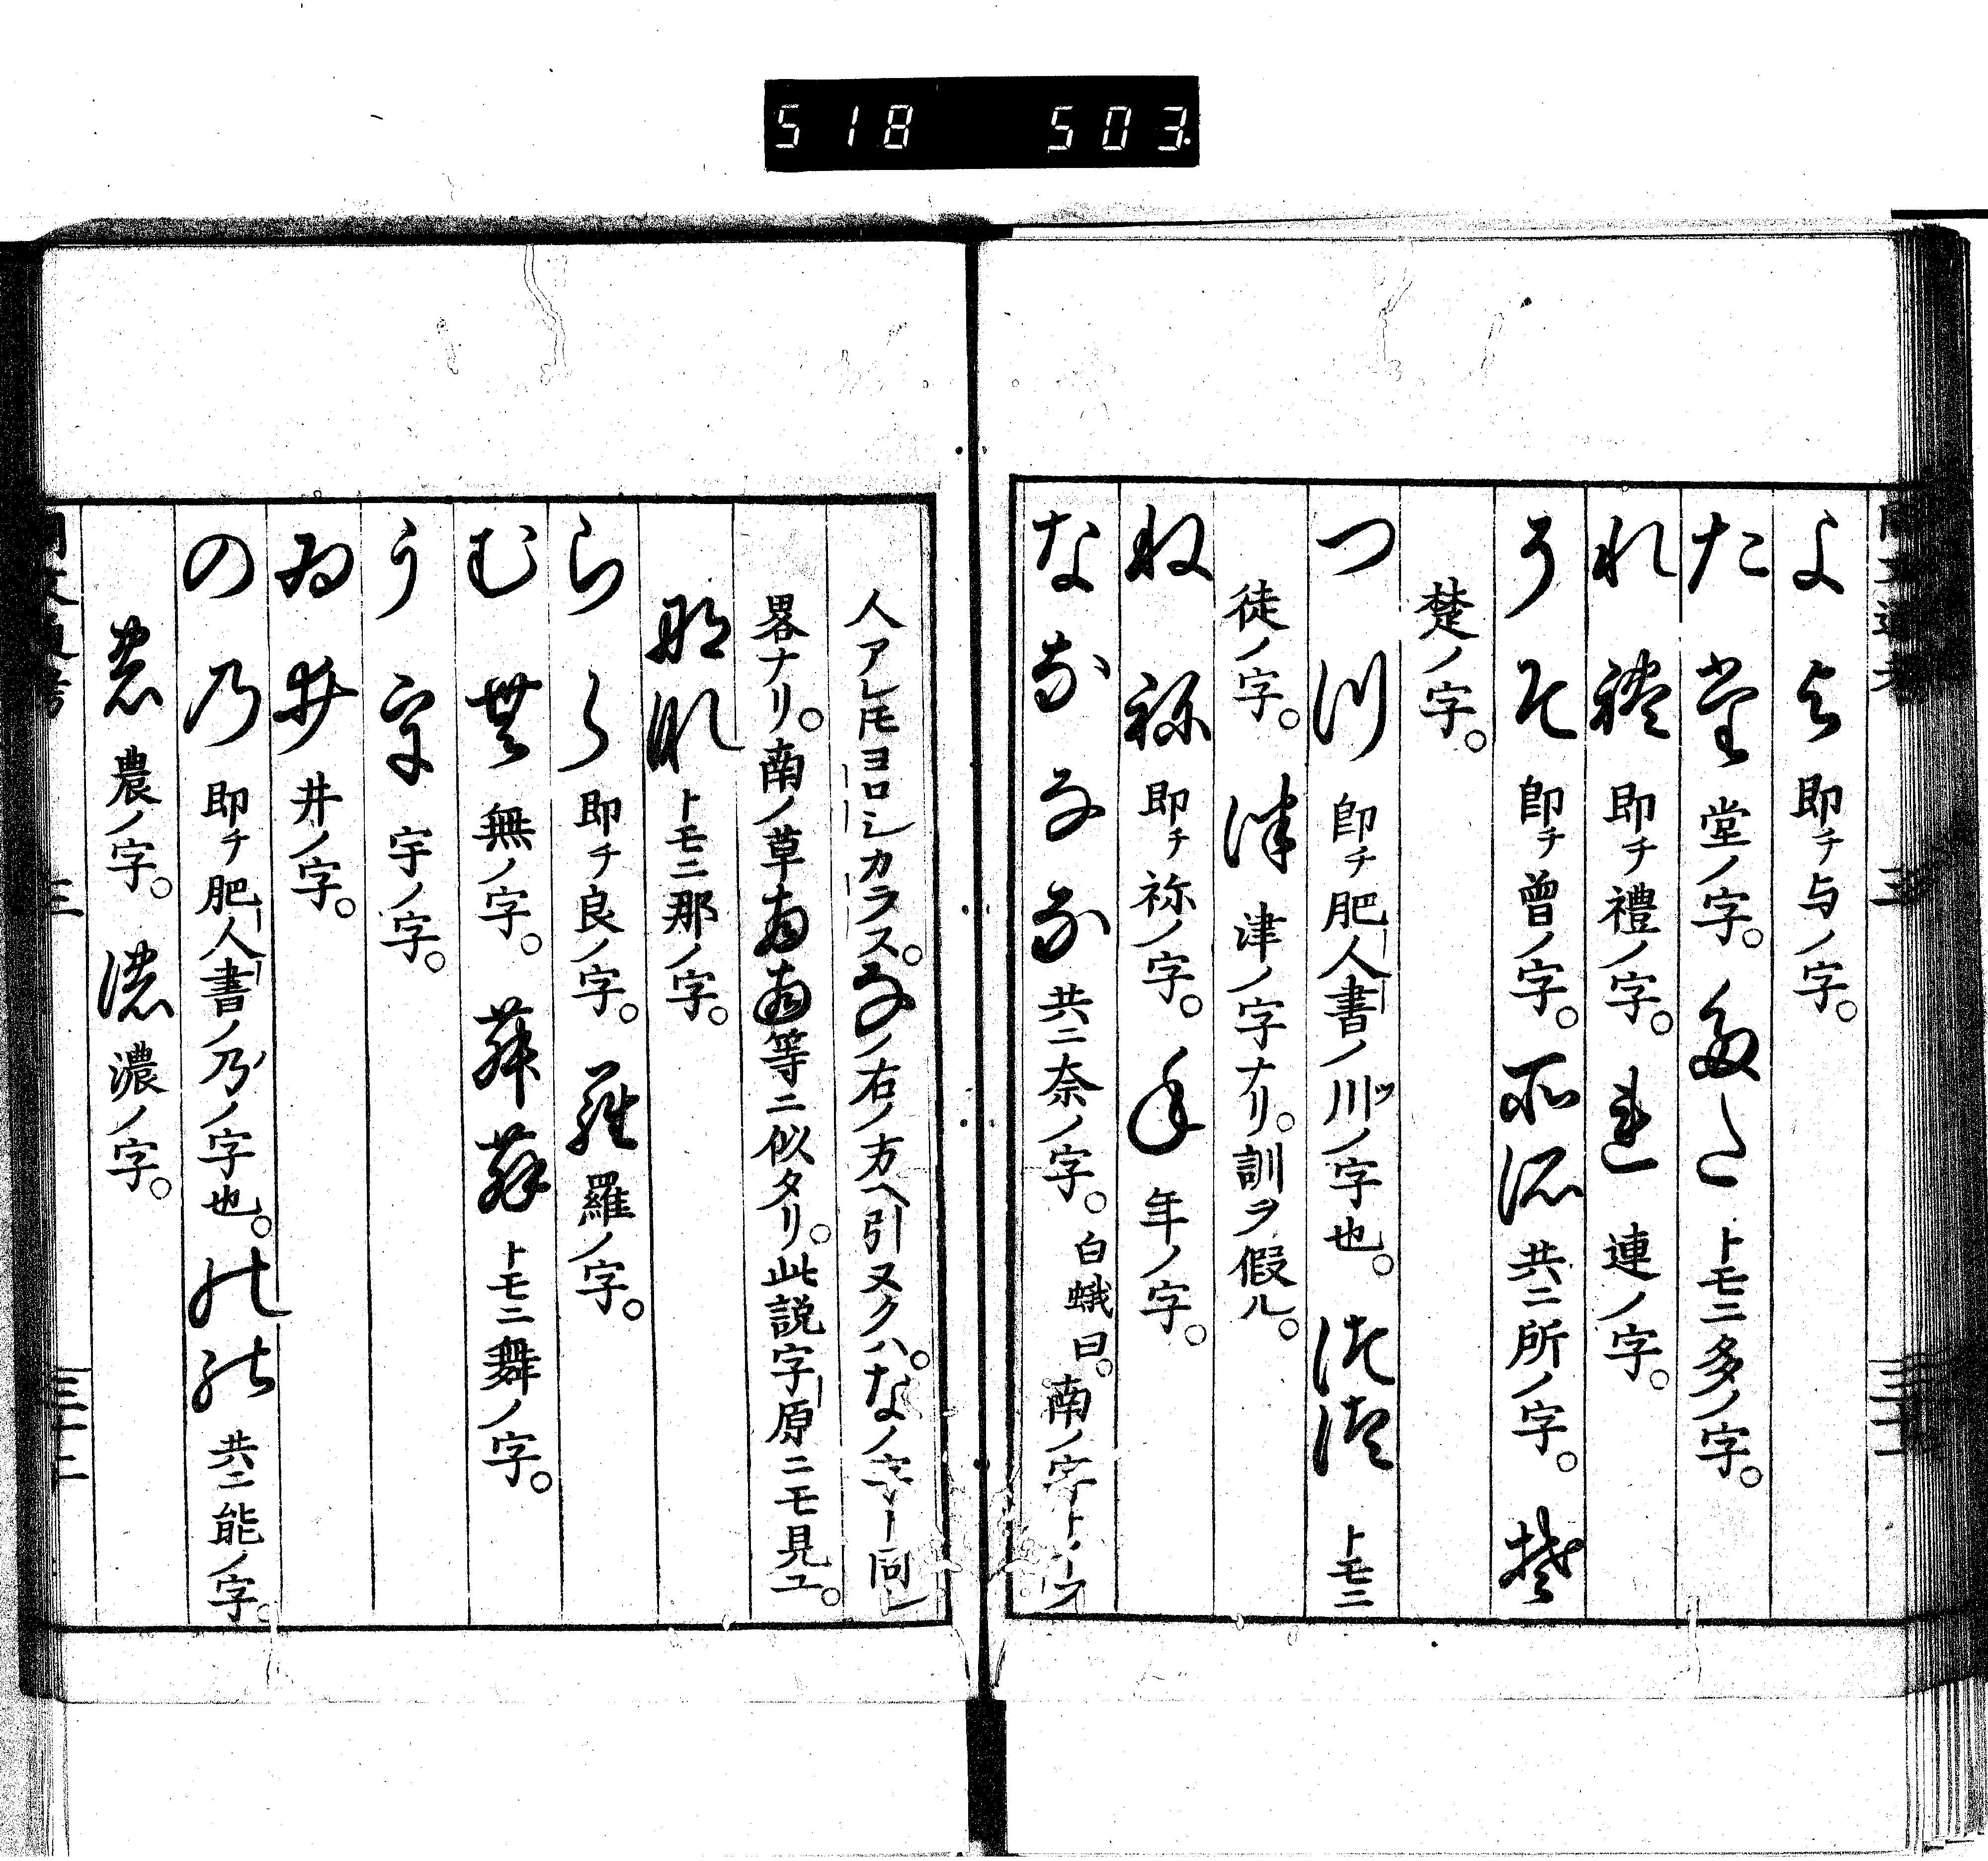 518 503
よ よ 即チ与ノ字。
た 堂 堂ノ字。多 た トモニ多ノ字。
れ 禮 即チ禮ノ字。連 連ノ字。
そ そ 即チ曾ノ字。所 所 共ニ所ノ字。楚
楚ノ字。
つ 川 即チ肥人書ノ川ツノ字也。徒 徒 トモニ
徒ノ字。津 津ノ字ナリ。訓ヲ假ル。
ね 祢 即チ祢ノ字。年 年ノ字。
な な な な 共ニ奈ノ字。白蛾曰。南ノ字トイフ
人アレ𪜈ヨロシカラス。なノ右ノ方ヘ引ヌクハ。なノ字ト同シ
畧ナリ。南ノ草南南等ニ似タリ。此説字原ニモ見ユ。
那 那 トモニ那ノ字。
ら ら 即チ良ノ字。羅 羅ノ字。
む 無 無ノ字。舞 舞 トモニ舞ノ字。
う 宇 宇ノ字。
ゐ 井 井ノ字。
の 乃 即チ肥人書ノ乃ノ字也。能 能 共ニ能ノ字。
農 農ノ字。濃 濃ノ字。
三
三十二